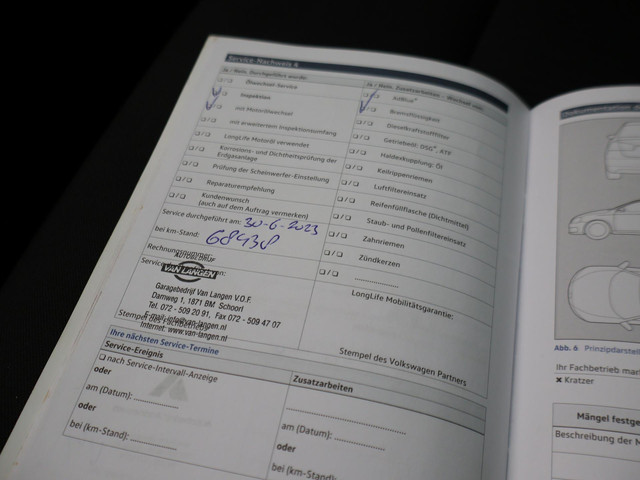 Service-Nachweis 4
Ja / Nein, Durchgeführt wurde:
Ölwechsel-Service
Inspektion
mit Motorölwechsel
mit erweitertem Inspektionsumfang
LongLife Motoröl verwendet
Korrosions- und Dichtheitsprüfung der
Erdgasanlage
Prüfung der Scheinwerfer-Einstellung
Reparaturempfehlung
Kundenwunsch
(auch auf dem Auftrag vermerken)
Service durchgeführt am: 30-6-2023
bei km-Stand: 68438
Rechnungsnummer:
VAN LANGEN
Garagebedrijf Van Langen V.O.F.
Damweg 1, 1871 BM. Schoorl
Tel. 072 - 509 20 91, Fax 072 - 509 47 07
E-mail: info@van-langen.nl
Internet: www.van-langen.nl
Stempel des Fachbetriebs
Ja / Nein, Zusatzarbeiten – Wechsel von:
AdBlue®
Bremsflüssigkeit
Dieselkraftstofffilter
Getriebeöl: DSG®, ATF
Haldexkupplung: Öl
Keilrippenriemen
Luftfiltereinsatz
Reifenfüllflasche (Dichtmittel)
Staub- und Pollenfiltereinsatz
Zahnriemen
Zündkerzen
LongLife Mobilitätsgarantie:
Stempel des Volkswagen Partners
Ihre nächsten Service-Termine
Service-Ereignis
nach Service-Intervall-Anzeige
oder
am (Datum):
oder
bei (km-Stand):
Zusatzarbeiten
am (Datum):
oder
bei (km-Stand):
Abb. 6 Prinzipdarstell
Ihr Fachbetrieb mar
× Kratzer
Mängel festge
Beschreibung der M